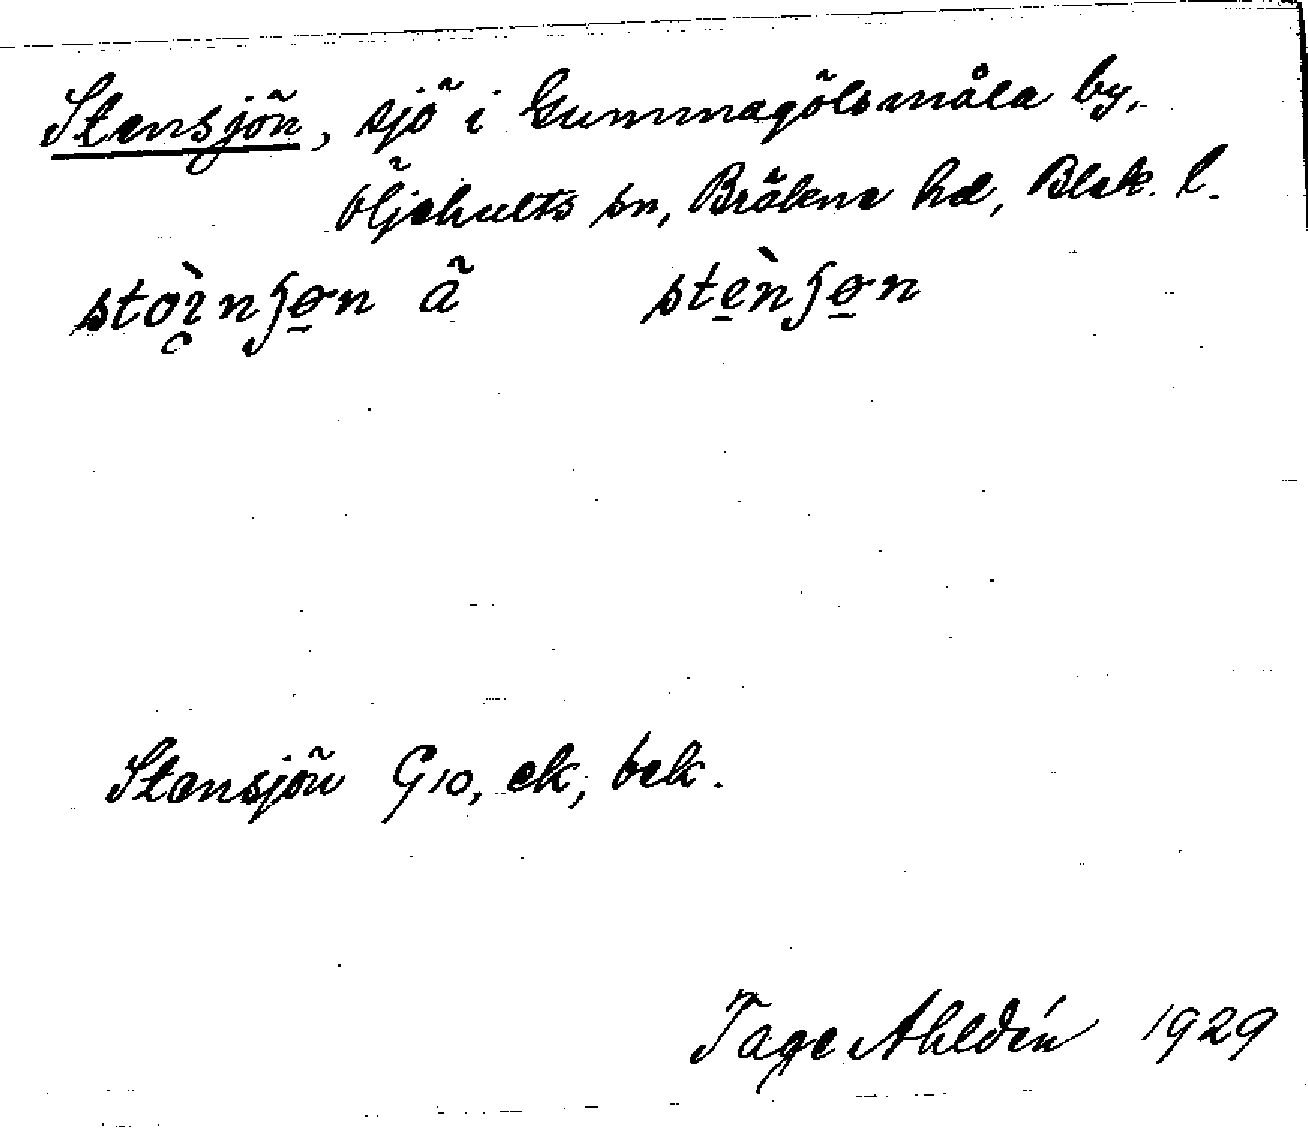 Stensjön, sjö i Gummagölsmåla by,
Öljehults sn, Bräkne hd, Blek. l.
stoì̯nʃo̱n ä stè̱nʃo̱n
Stensjön G10, ek, bek.
Tage Ahldén 1929